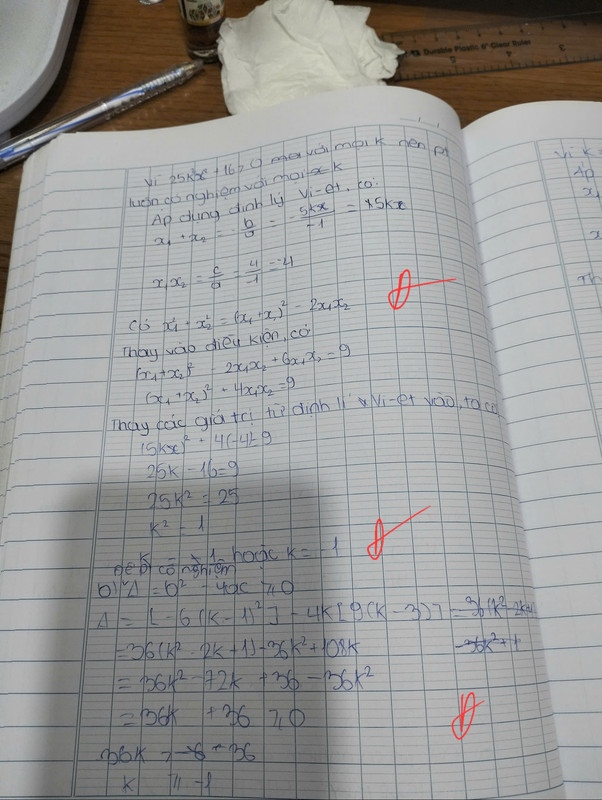 Durable Plastic 6" Clear Ruler
Vì 25k²x² + 16 > 0 với mọi k nên pt
luôn có nghiệm với mọi k
Áp dụng định lý Vi-ét, có:
x₁ + x₂ = -b/a = -5kx/-1 = 5kx
x₁x₂ = c/a = 4/-1 = -4
Có x₁² + x₂² = (x₁ + x₂)² - 2x₁x₂
Thay vào điều kiện, có
(x₁ + x₂)² - 2x₁x₂ + 6x₁x₂ = 9
(x₁ + x₂)² + 4x₁x₂ = 9
Thay các giá trị từ định lí Vi-ét vào, ta có
(5kx)² + 4(-4) = 9
25k - 16 = 9
25k² = 25
k² = 1
k = 1 hoặc k = -1
Để pt có nghiệm
b) Δ = b² - 4ac ≥ 0
Δ = [-6(k-1)²] - 4k[9(k-3)] = 36(k² - 2k+1)
= 36(k² - 2k + 1) - 36k² + 108k
= 36k² - 72k + 36 - 36k²
= 36k + 36 ≥ 0
36k ≥ 36
k ≥ -1
Vì k
Áp
x₁
x
Th